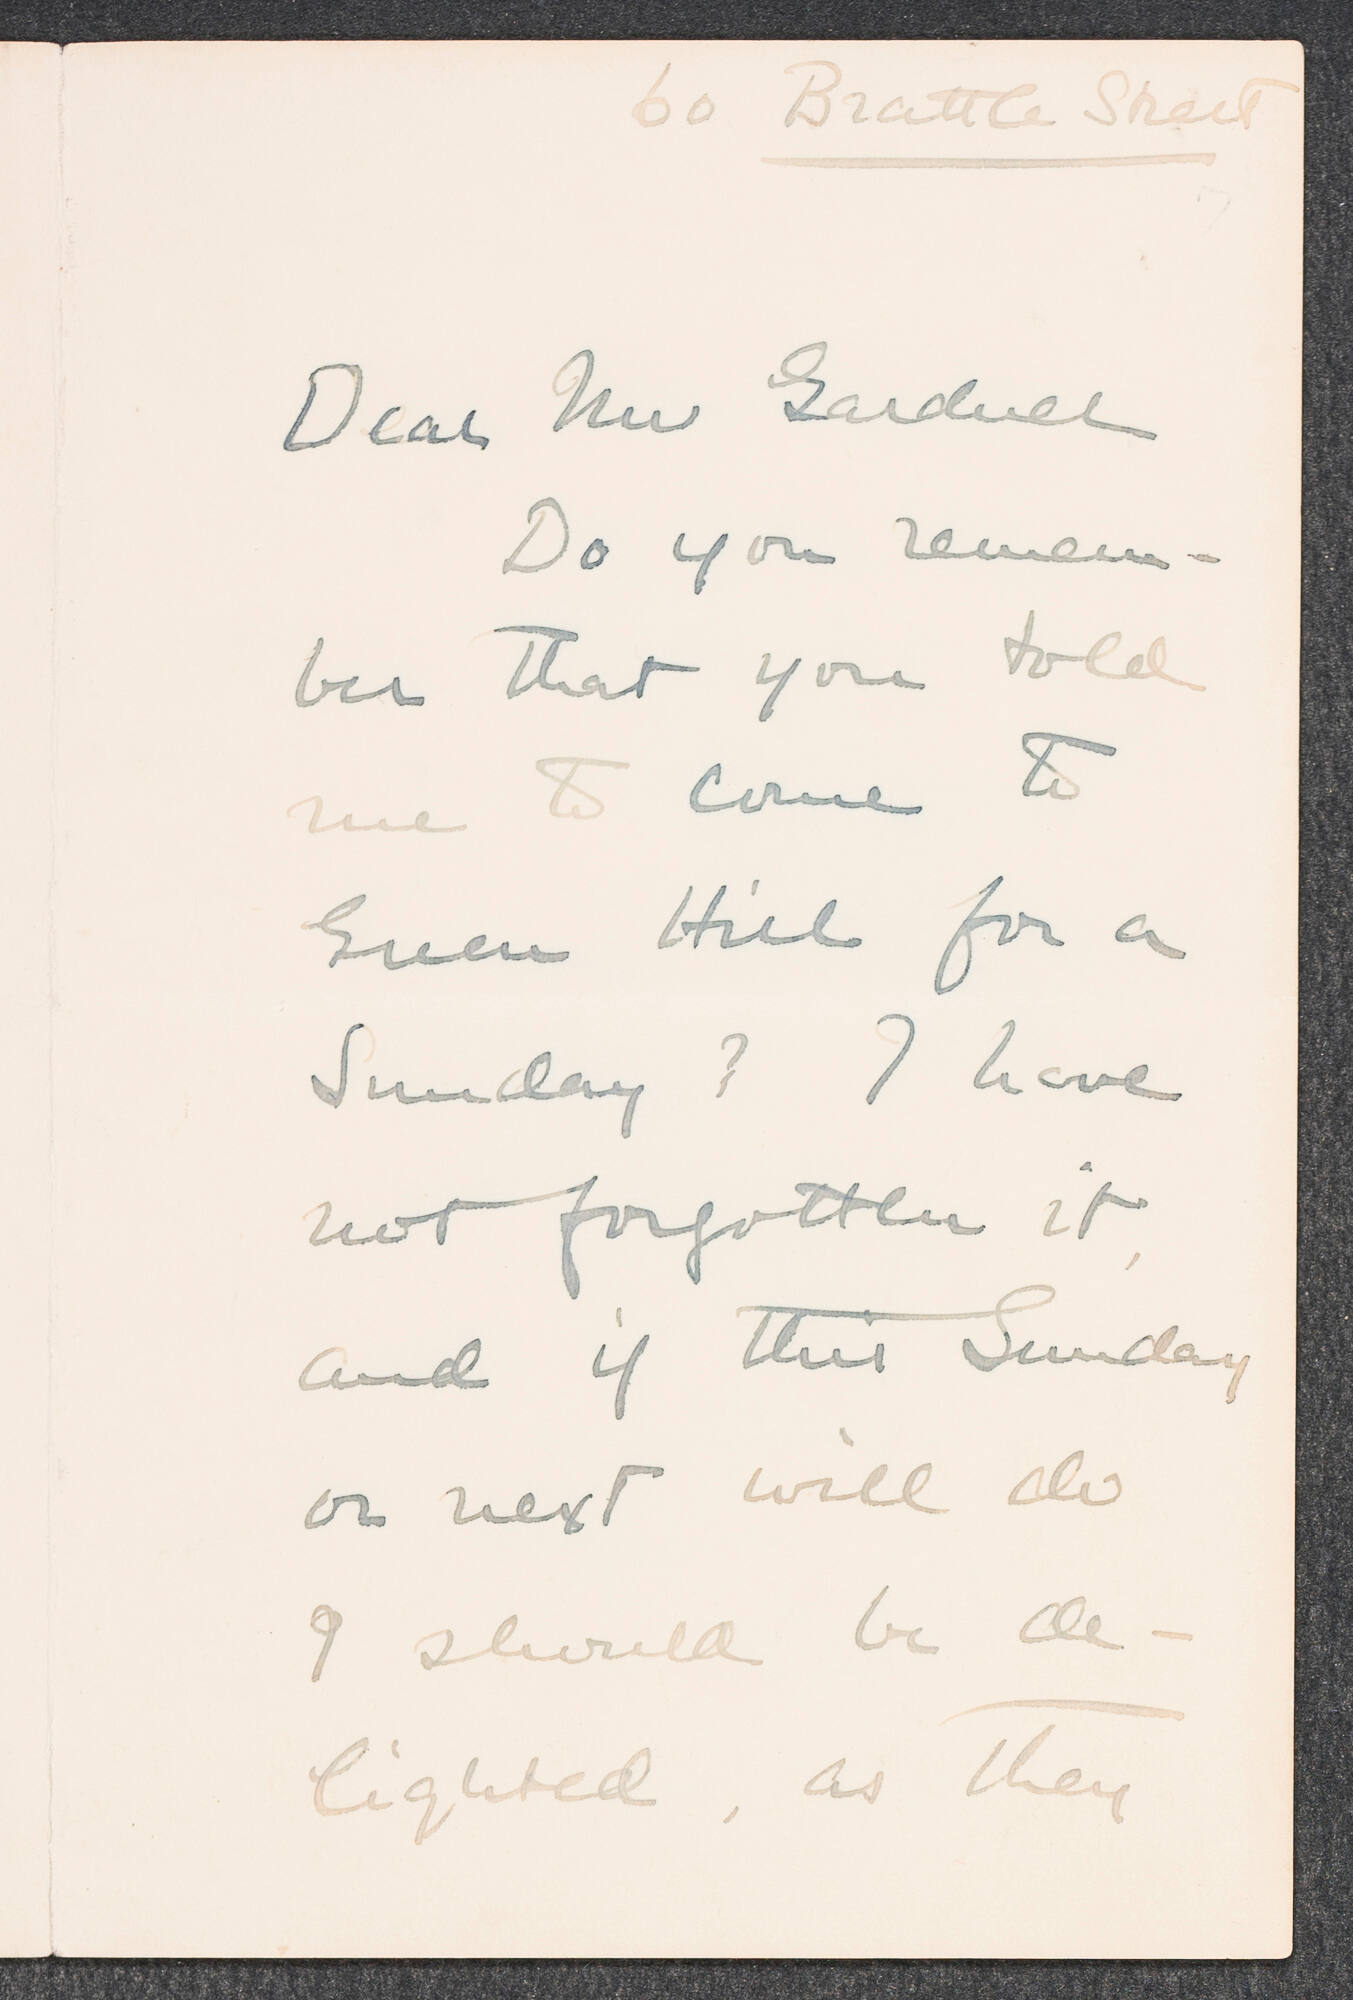 60 Brattle Street
Dear Mrs Gardner
Do you remem-
ber that you told
me to come to
Green Hill for a
Sunday? I have
not forgotten it,
and if this Sunday
or next will do
I should be de-
lighted, as they